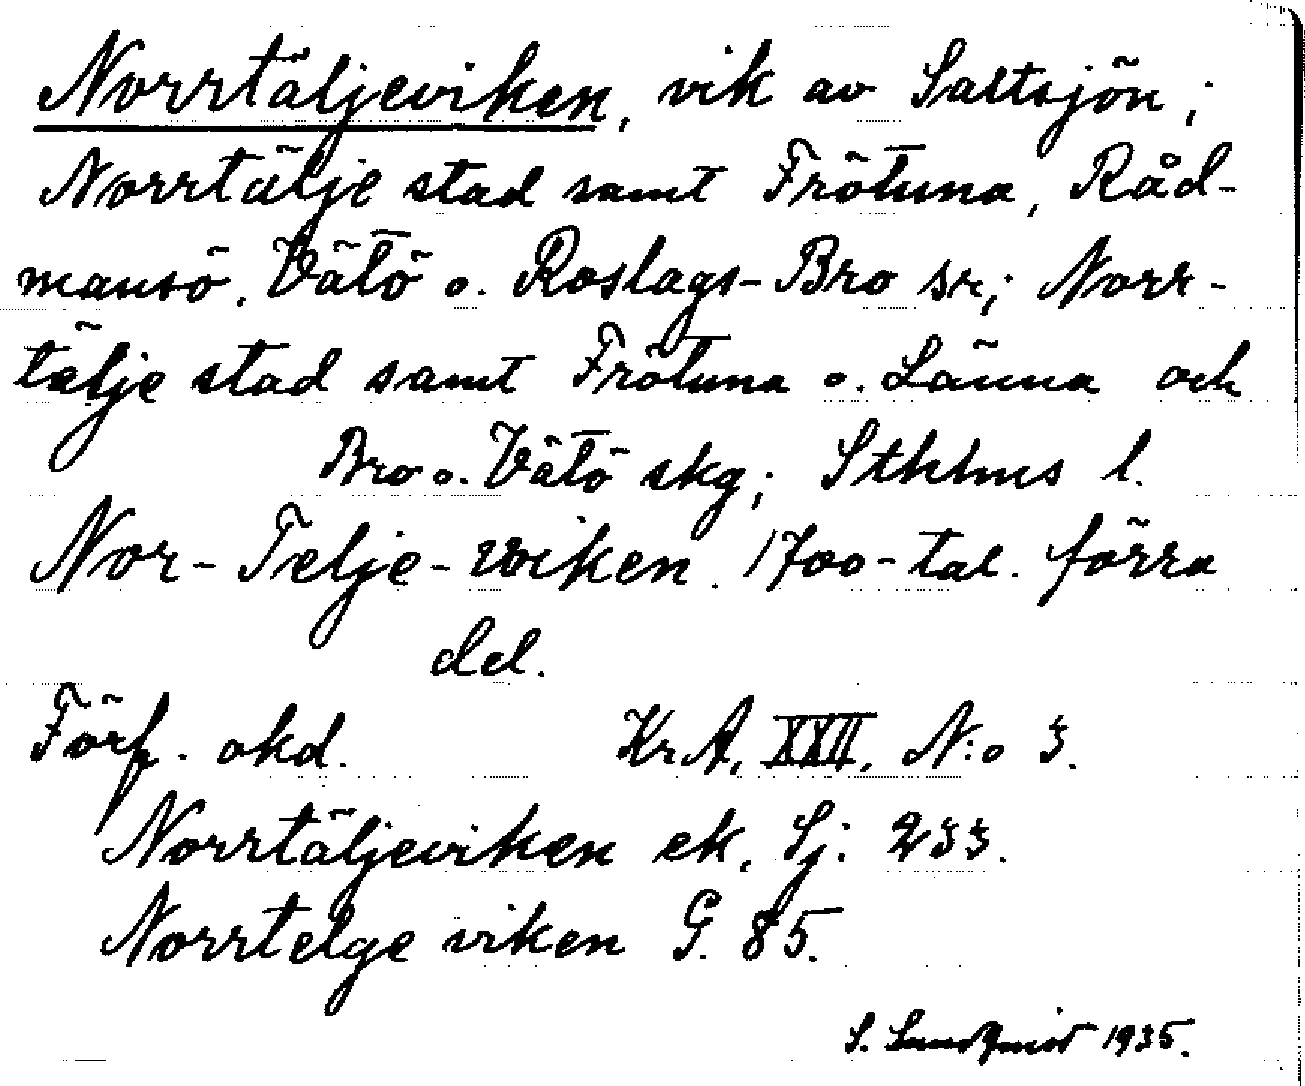 Norrtäljeviken, vik av Saltsjön;
Norrtälje stad samt Frötuna, Råd-
mansö, Vätö o. Roslags-Bro sr; Norr-
tälje stad samt Frötuna o. Länna och
Bro o. Vätö skg; Sthlms l.
Nor-Telje-wiken. 1700-tal. förra
del.
Förf. okd. KrA, XXII, N:o 3.
Norrtäljeviken ek. Sj: 233.
Norrtelge viken G. 85.
S. Lundqvist 1935.